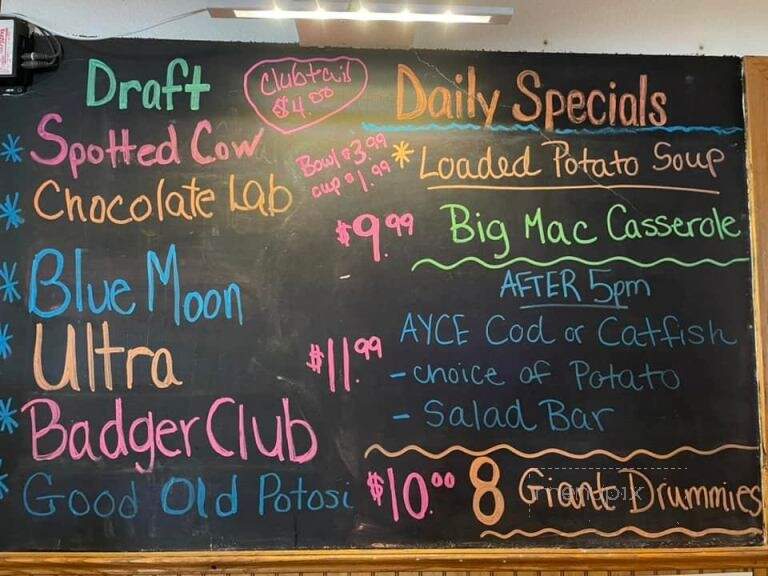 Draft
Clubtail
$4.00
* Spotted Cow
* Chocolate Lab
* Blue Moon
* Ultra
* Badger Club
* Good Old Potosi
Daily Specials
Bowl $3.99
cup $1.99
* Loaded Potato Soup
$9.99 Big Mac Casserole
AFTER 5pm
$11.99 AYCE Cod or Catfish
- choice of Potato
- Salad Bar
$10.00 8 Giant Drummies
menupix